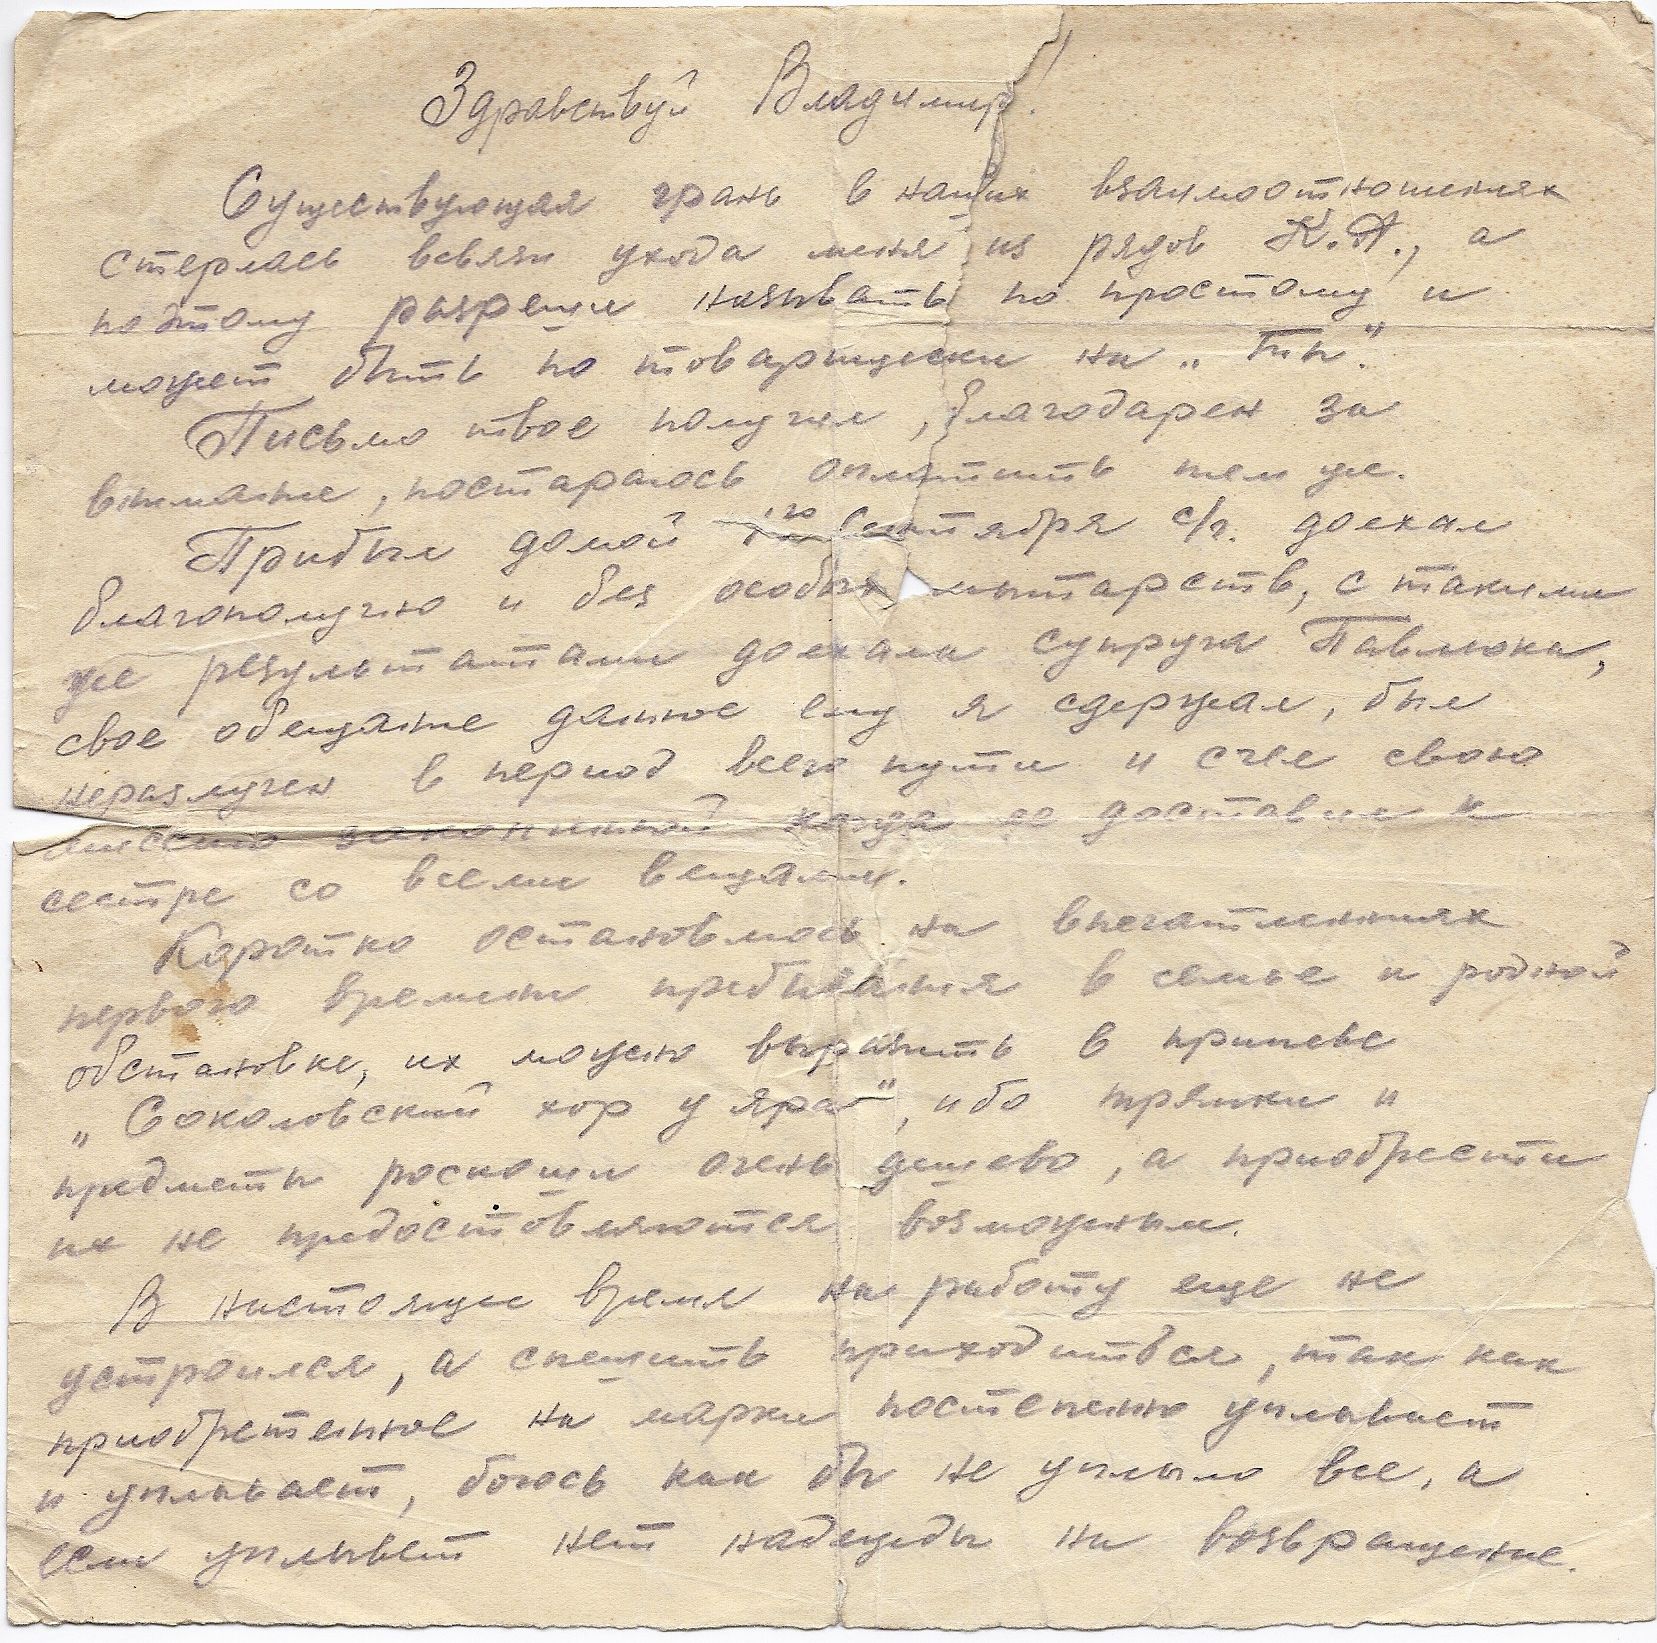 Здравствуй Владимир!
Существующая грань в наших взаимоотношениях
стерлась всвязи ухода меня из рядов К.А., а
поэтому разреши называть по простому и
может быть по товарищески на „Ты".
Письмо твое получил, благодарен за
внимание, постараюсь оплатить тем же.
Прибыл домой сентября с/г. доехал
благополучно и без особых мытарств, с такими
же результатами доехала супруга Павлюка,
свое обещание данное ему я сдержал, был
неразлучен в период всего пути и счел свою
миссию законченной когда ее доставил к
сестре со всеми вещами.
Коротко остановлюсь на впечатлениях
первого времени пребывания в семье и родной
обстановке, их можно выразить в припеве
„Соколовский хор у яра", ибо тряпки и
предметы роскоши очень дешево, а приобрести
их не предостовляются возможным.
В настоящее время на работу еще не
устроился, а спешить приходиться, так как
приобретенное на марки постепенно уплывает
и уплывает, боюсь как бы не уплыло все, а
если уплывет нет надежды на возвращение.